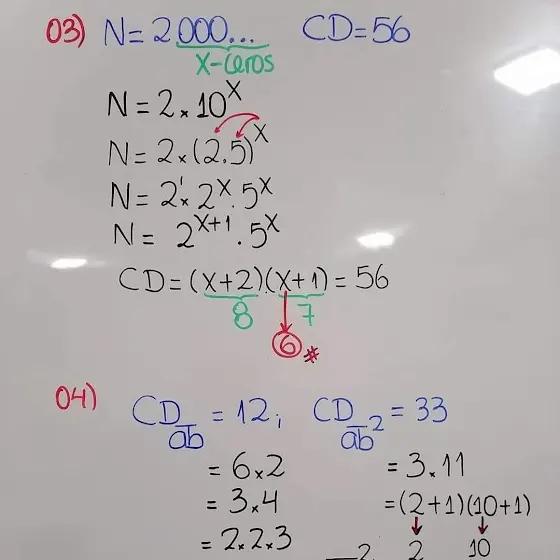 03) N = 2000... CD = 56
x-ceros
N = 2 × 10^x
N = 2 × (2.5)^x
N = 2^1 × 2^x . 5^x
N = 2^(x+1) . 5^x
CD = (x+2).(x+1) = 56
8 7
6 #
04) CD_ab = 12; CD_ab² = 33
= 6×2 = 3×11
= 3×4 = (2+1)(10+1)
= 2×2×3 2 2 10